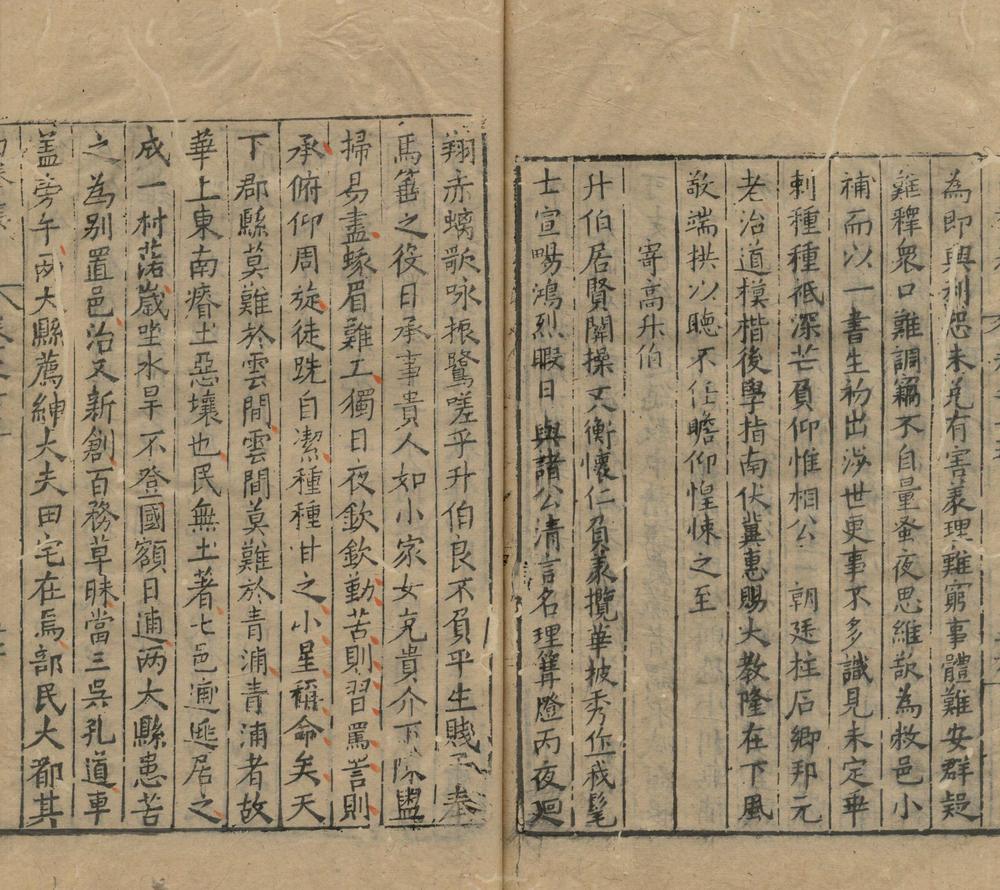 為即興利恐未見有害義理雖窮事體難安群疑
難釋衆口難調竊不自量蚤夜思維欲為救邑小
補而以一書生初出涉世更事不多識見未定乖
刺種種祗深芒負仰惟相公 朝廷柱石鄉邦元
老治道模楷後學指南伏冀惠賜大教隆在下風
敬端拱以聽不任瞻仰惶悚之至
寄高升伯
升伯居賢關操文衡懷仁負義攬華披秀作我髦
士宣暢鴻烈暇日與諸公清言名理篝燈丙夜廻
翔赤螭歌咏振鷺嗟乎升伯良不負平生賤子奉
馬箠之役日承事貴人如小家女充貴介下陳盥
掃易盡蛾眉難工獨日夜欽欽勤苦則習罵詈則
承俯仰周旋徒跣自潔種種甘之小星稱命矣天
下郡縣莫難於雲間雲間莫難於青浦青浦者故
華上東南瘠土惡壤也民無土著七邑逋逃居之
成一村落歲坐水旱不登國額日逋兩大縣患苦
之為别置邑治又新創百務草昧當三吳孔道車
盖旁午兩大縣薦紳大夫田宅在焉部民大都其